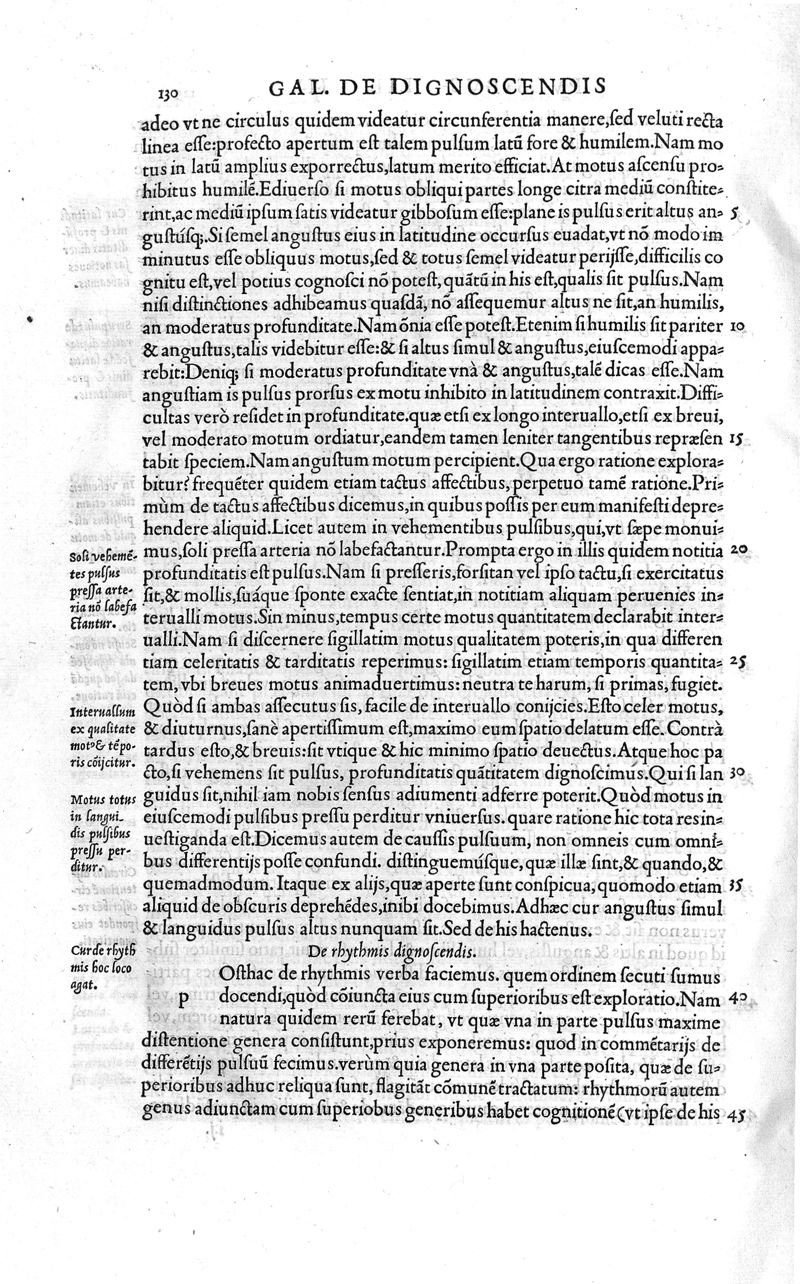 130 GAL. DE DIGNOSCENDIS
adeo vt ne circulus quidem videatur circunferentia manere,ſed veluti recta
linea eſſe:profecto apertum eſt talem pulſum latũ fore & humilem.Nam mo
tus in latũ amplius exporrectus,latum merito efficiat.At motus aſcenſu pro⸗
hibitus humilẽ.Ediuerſo ſi motus obliqui partes longe citra mediũ conſtite⸗
rint,ac mediũ ipſum ſatis videatur gibboſum eſſe:plane is pulſus erit altus an⸗ 5
guſtúſq;.Si ſemel anguſtus eius in latitudine occurſus euadat,vt nõ modo im
minutus eſſe obliquus motus,ſed & totus ſemel videatur perijſſe,difficilis co
gnitu eſt,vel potius cognoſci nõ poteſt,quãtũ in his eſt,qualis ſit pulſus.Nam
niſi diſtinctiones adhibeamus quaſdã, nõ aſſequemur altus ne ſit,an humilis,
an moderatus profunditate.Nam õnia eſſe poteſt.Etenim ſi humilis ſit pariter 10
& anguſtus,talis videbitur eſſe:& ſi altus ſimul & anguſtus,eiuſcemodi appa⸗
rebit:Deniq; ſi moderatus profunditate vnà & anguſtus,talẽ dicas eſſe.Nam
anguſtiam is pulſus prorſus ex motu inhibito in latitudinem contraxit.Diffi⸗
cultas verò reſidet in profunditate.quæ etſi ex longo interuallo,etſi ex breui,
vel moderato motum ordiatur,eandem tamen leniter tangentibus repræſen 15
tabit ſpeciem.Nam anguſtum motum percipient.Qua ergo ratione explora⸗
bitur? frequẽter quidem etiam tactus affectibus, perpetuo tamẽ ratione.Pri⸗
mùm de tactus affectibus dicemus,in quibus poſſis per eum manifeſti depre⸗
hendere aliquid.Licet autem in vehementibus pulſibus,qui,vt ſæpe monui⸗
Soli vehemẽ⸗
tes pulſus
preſſa arte⸗
ria nõ labefa
ctantur.
mus,ſoli preſſa arteria nõ labefactantur.Prompta ergo in illis quidem notitia 20
profunditatis eſt pulſus.Nam ſi preſſeris,forſitan vel ipſo tactu,ſi exercitatus
ſit,& mollis,ſuáque ſponte exacte ſentiat,in notitiam aliquam peruenies in⸗
terualli motus.Sin minus,tempus certe motus quantitatem declarabit inter⸗
ualli.Nam ſi diſcernere ſigillatim motus qualitatem poteris,in qua differen
tiam celeritatis & tarditatis reperimus: ſigillatim etiam temporis quantita⸗ 25
tem,vbi breues motus animaduertimus: neutra te harum, ſi primas, fugiet.
Interuallum
ex qualitate
motꝰ & tẽpo⸗
ris cõijcitur.
Quòd ſi ambas aſſecutus ſis, facile de interuallo conijcies.Eſto celer motus,
& diuturnus,ſanè apertiſſimum eſt,maximo eum ſpatio delatum eſſe. Contrà
tardus eſto,& breuis:ſit vtique & hic minimo ſpatio deuectus.Atque hoc pa
cto,ſi vehemens ſit pulſus, profunditatis quãtitatem dignoſcimus.Qui ſi lan 30
Motus totus
in langui⸗
dis pulſibus
preſſu per⸗
ditur.
guidus ſit,nihil iam nobis ſenſus adiumenti adferre poterit.Quòd motus in
eiuſcemodi pulſibus preſſu perditur vniuerſus. quare ratione hic tota res in⸗
ueſtiganda eſt.Dicemus autem de cauſſis pulſuum, non omneis cum omni⸗
bus differentijs poſſe confundi. diſtinguemúſque,quæ illæ ſint,& quando,&
quemadmodum. Itaque ex alijs,quæ aperte ſunt conſpicua,quomodo etiam 35
aliquid de obſcuris deprehẽdes,inibi docebimus.Adhæc cur anguſtus ſimul
& languidus pulſus altus nunquam ſit.Sed de his hactenus.
Cur de rhyth
mis hoc loco
agat.
De rhythmis dignoſcendis.
p Oſthac de rhythmis verba faciemus. quem ordinem ſecuti ſumus
docendi,quòd cõiuncta eius cum ſuperioribus eſt exploratio.Nam 40
natura quidem rerũ ferebat, vt quæ vna in parte pulſus maxime
diſtentione genera conſiſtunt,prius exponeremus: quod in commẽtarijs de
differẽtijs pulſuũ fecimus.verùm quia genera in vna parte poſita, quæ de ſu⸗
perioribus adhuc reliqua ſunt, flagitãt cõmunẽ tractatum: rhythmorũ autem
genus adiunctam cum ſuperiobus generibus habet cognitionẽ (vt ipſe de his 45